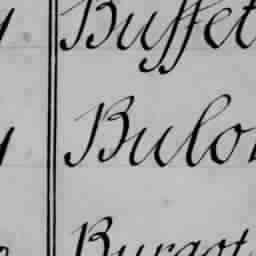 y Buffet
y Bulo
Burgot